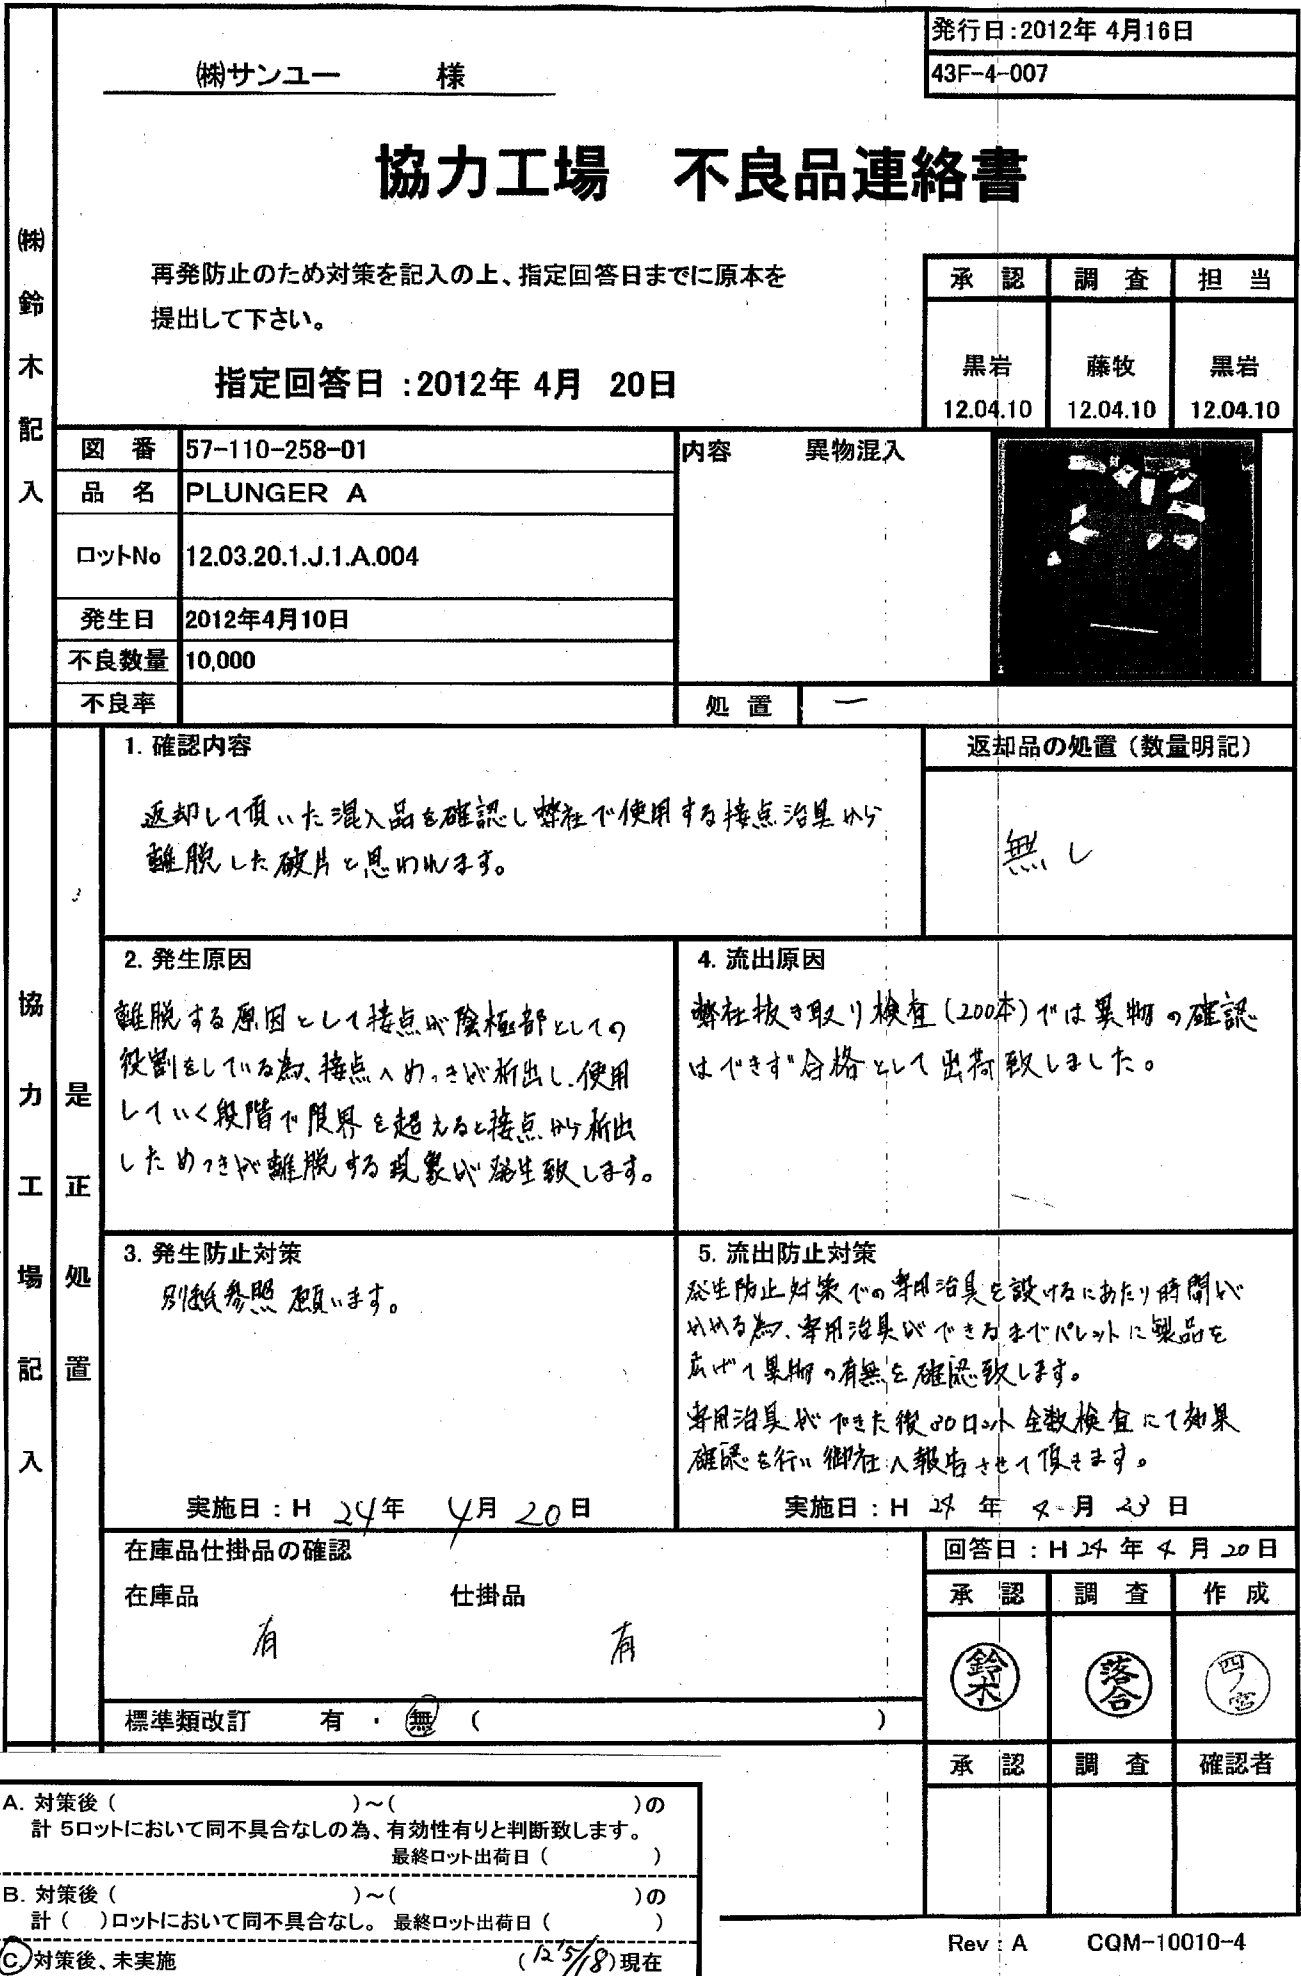 発行日:2012年 4月16日
43F-4-007
㈱サンユー 様
協力工場 不良品連絡書
㈱鈴木記入
再発防止のため対策を記入の上、指定回答日までに原本を
提出して下さい。
指定回答日 :2012年 4月 20日
承認 調査 担当
黒岩 藤牧 黒岩
12.04.10 12.04.10 12.04.10
図番 57-110-258-01
品名 PLUNGER A
ロットNo 12.03.20.1.J.1.A.004
発生日 2012年4月10日
不良数量 10,000
不良率
内容 異物混入
処置 ー
協力工場記入
是正処置
1. 確認内容
返却して頂いた混入品を確認し弊社で使用する接点治具から
離脱した破片と思われます。
返却品の処置（数量明記）
無し
2. 発生原因
離脱する原因として接点が陰極部としての
役割をしている為、接点へめっきが析出し、使用
していく段階で限界を超えると接点から析出
しためっきが離脱する現象が発生致します。
4. 流出原因
弊社抜き取り検査(200本)では異物の確認
はできず合格として出荷致しました。
3. 発生防止対策
別紙参照願います。
実施日：H 24年 4月 20日
5. 流出防止対策
発生防止対策での専用治具を設けるにあたり時間が
かかる為、専用治具ができるまでパレットに製品を
広げて異物の有無を確認致します。
専用治具ができた後30ロット全数検査にて効果
確認を行い御社へ報告させて頂きます。
実施日：H 24 年 4 月 23 日
在庫品仕掛品の確認
在庫品 仕掛品
有 有
標準類改訂 有 ・ 無 ( )
回答日：H 24 年 4 月 20日
承認 調査 作成
鈴木 落合 四ノ宮
承認 調査 確認者
A. 対策後（ ）～（ ）の
計 5ロットにおいて同不具合なしの為、有効性有りと判断致します。
最終ロット出荷日（ ）
B. 対策後（ ）～（ ）の
計（ ）ロットにおいて同不具合なし。 最終ロット出荷日（ ）
C. 対策後、未実施 （12'5/18）現在
Rev：A CQM-10010-4